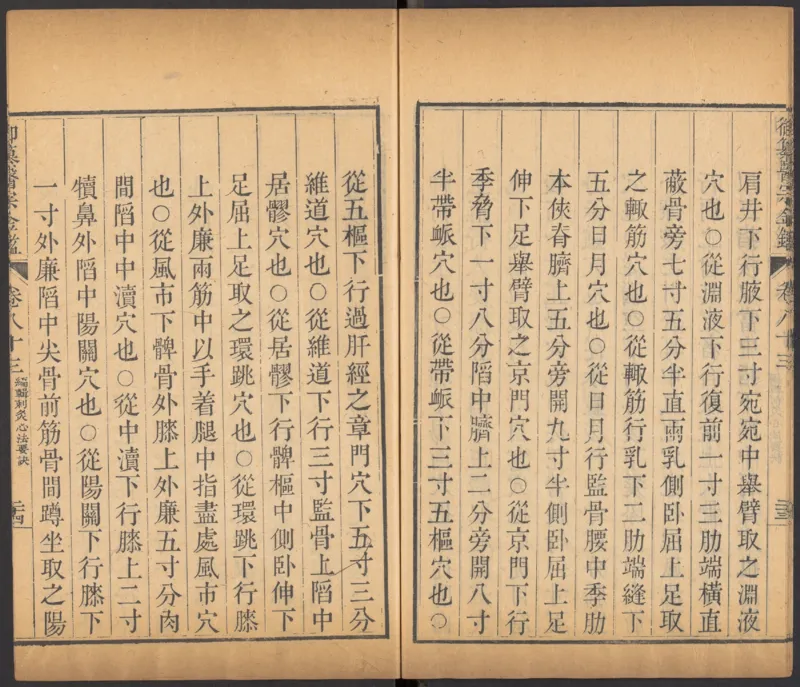 御纂醫宗金鑑 卷八十三
肩井下行腋下三寸宛宛中舉臂取之淵液
穴也○從淵液下行復前一寸三肋端橫直
蔽骨旁七寸五分半直兩乳側卧屈上足取
之輙筋穴也○從輙筋行乳下二肋端縫下
五分日月穴也○從日月行監骨腰中季肋
本俠脊臍上五分旁開九寸半側卧屈上足
伸下足舉臂取之京門穴也○從京門下行
季脅下一寸八分陷中臍上二分旁開八寸
半帶衇穴也○從帶衇下三寸五樞穴也○
從五樞下行過肝經之章門穴下五寸三分
維道穴也○從維道下行三寸監骨上陷中
居髎穴也○從居髎下行髀樞中側卧伸下
足屈上足取之環跳穴也○從環跳下行膝
上外廉兩筋中以手着腿中指盡處風市穴
也○從風市下髀骨外膝上外廉五寸分肉
間陷中中瀆穴也○從中瀆下行膝上二寸
犢鼻外陷中陽關穴也○從陽關下行膝下
一寸外廉陷中尖骨前筋骨間蹲坐取之陽
御纂醫宗金鑑 卷八十三 編輯刺灸心法要訣 二十四